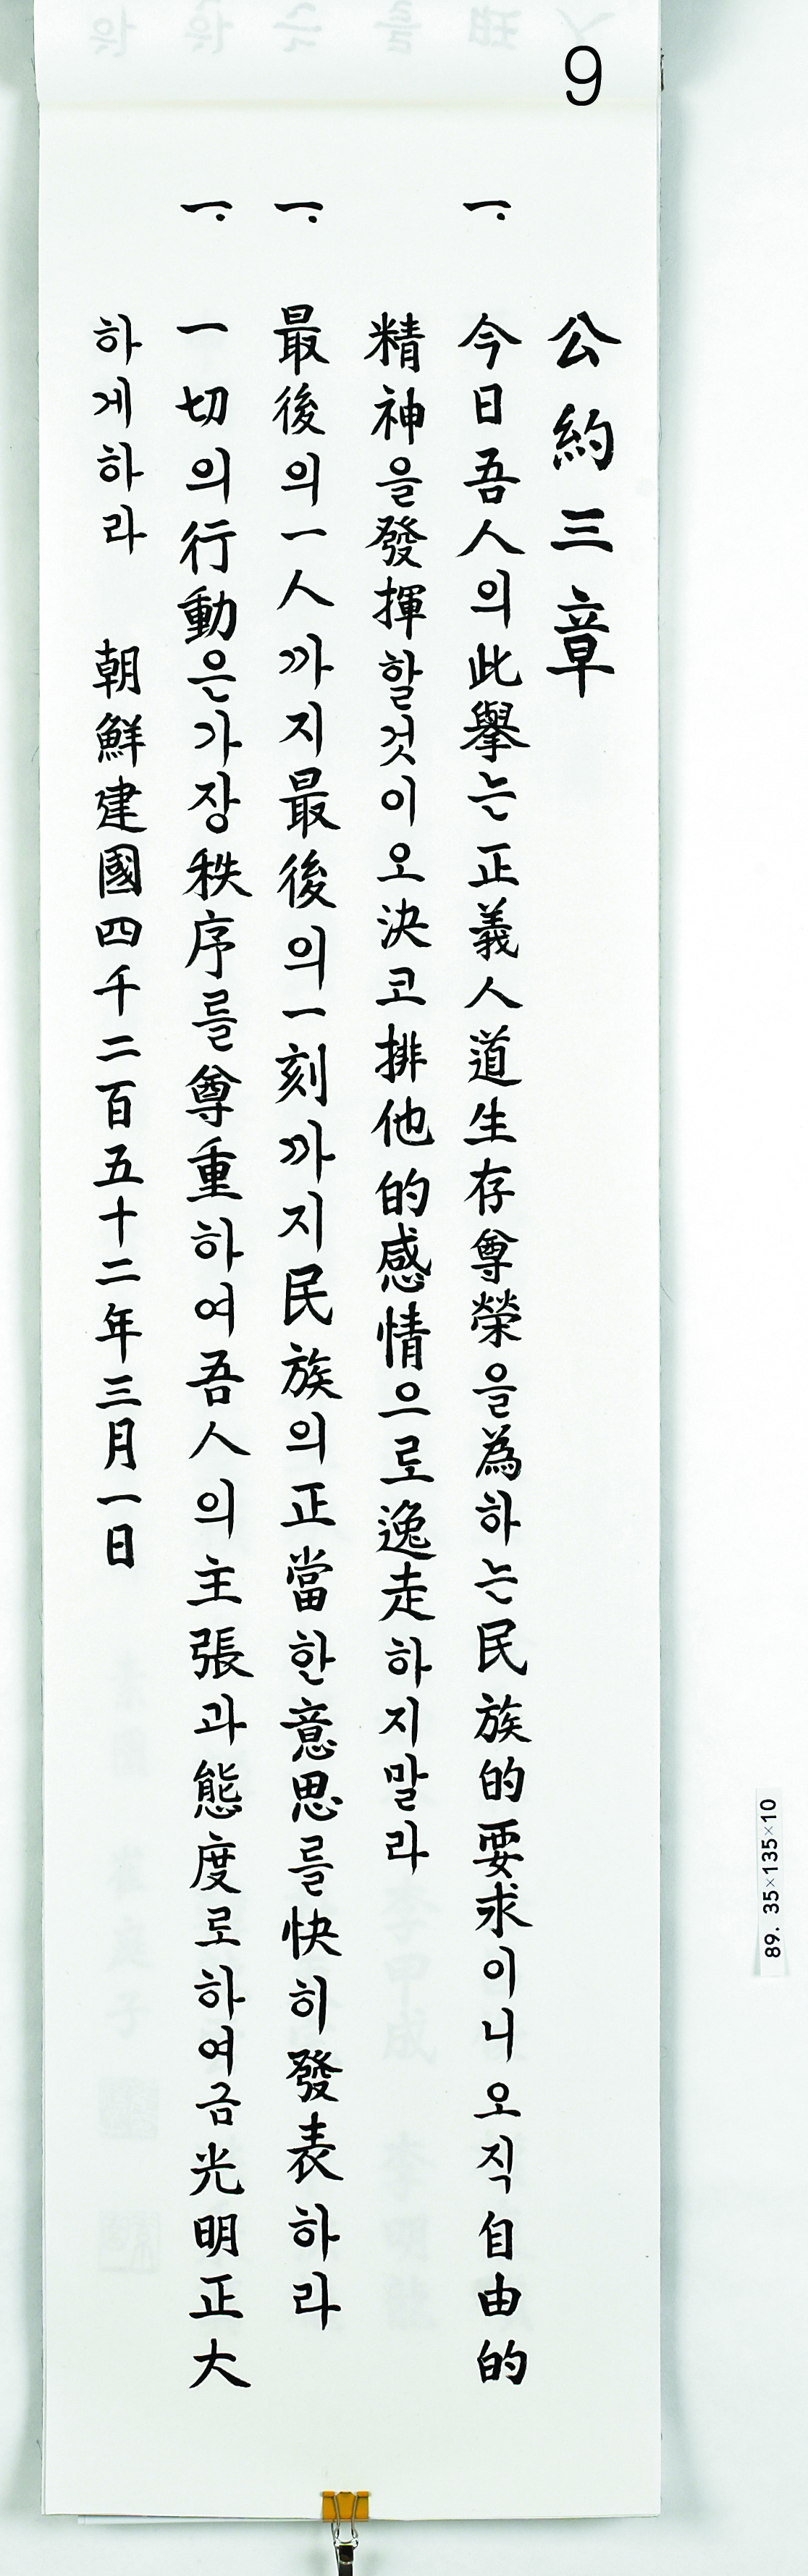 9
公約三章
一. 今日吾人의此擧는正義人道生存尊榮을爲하는民族的要求이니오직自由的
精神을發揮할것이오決코排他的感情으로逸走하지말라
一. 最後의一人까지最後의一刻까지民族의正當한意思를快히發表하라
一. 一切의行動은가장秩序를尊重하여吾人의主張과態度로하여금光明正大
하게하라 朝鮮建國四千二百五十二年三月一日
89. 35×135×10